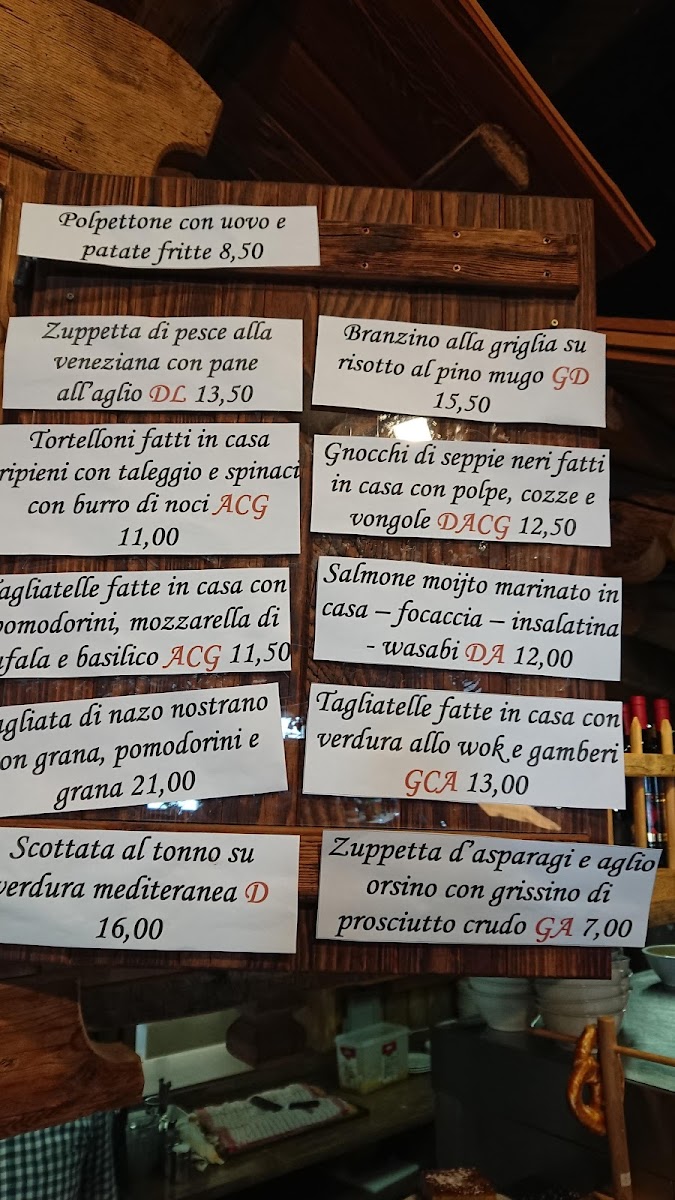 Polpettone con uovo e
patate fritte 8,50
Zuppetta di pesce alla
veneziana con pane
all'aglio DL 13,50
Branzino alla griglia su
risotto al pino mugo GD
15,50
Tortelloni fatti in casa
ripieni con taleggio e spinaci
con burro di noci ACG
11,00
Gnocchi di seppie neri fatti
in casa con polpe, cozze e
vongole DACG 12,50
agliatelle fatte in casa con
pomodorini, mozzarella di
ufala e basilico ACG 11,50
Salmone moijto marinato in
casa – focaccia – insalatina
- wasabi DA 12,00
agliata di nazo nostrano
on grana, pomodorini e
grana 21,00
Tagliatelle fatte in casa con
verdura allo wok e gamberi
GCA 13,00
Scottata al tonno su
verdura mediteranea D
16,00
Zuppetta d'asparagi e aglio
orsino con grissino di
prosciutto crudo GA 7,00